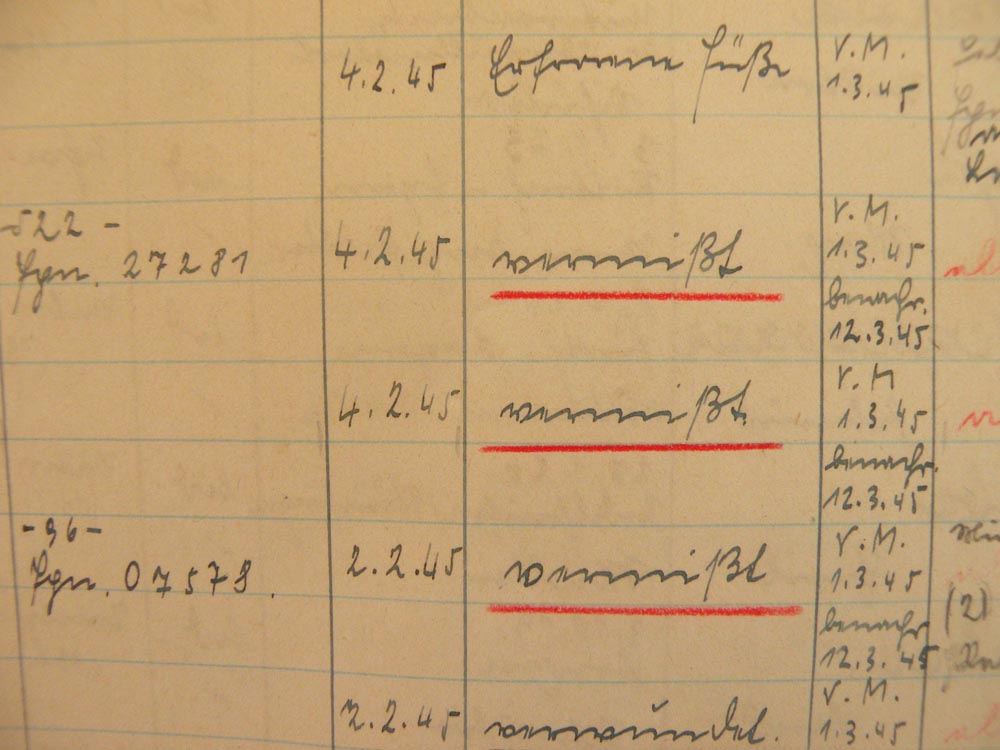 4.2.45 Erfrorene Füße V.M.
1.3.45
-522-
Fgn. 27281 4.2.45 vermißt V.M.
1.3.45
benachr.
12.3.45
4.2.45 vermißt. V.M
1.3.45
benachr.
12.3.45
-96-
Fgn. 07573. 2.2.45 vermißt V.M.
1.3.45
(2)
benachr
12.3.45
2.2.45 verwundet. V.M.
1.3.45